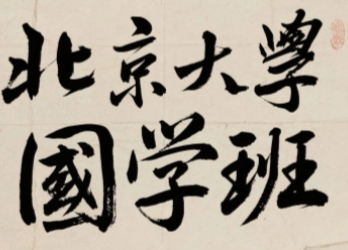 北京大學
國学班